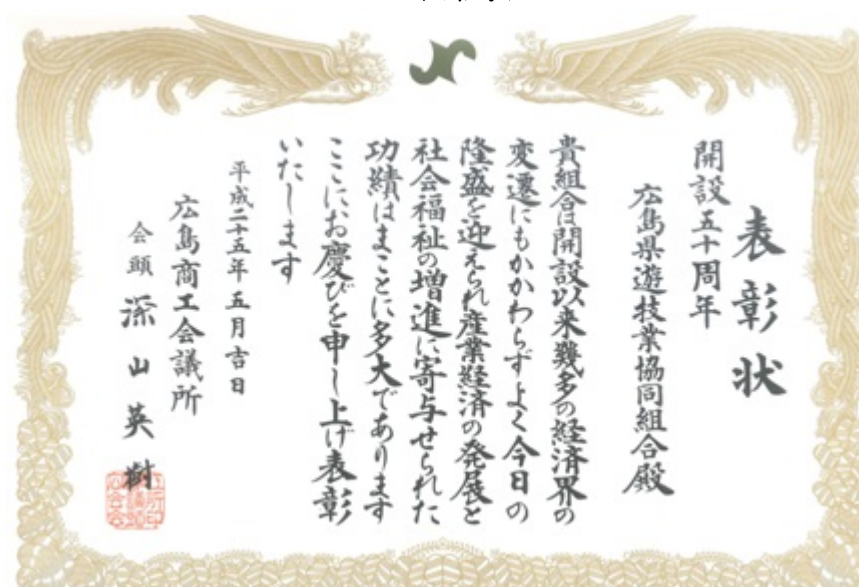 表彰状
開設五十周年
広島県遊技業協同組合殿
貴組合は開設以来幾多の経済界の
変遷にもかかわらずよく今日の
隆盛を迎えられ産業経済の発展と
社会福祉の増進に寄与せられた
功績はまことに多大であります
ここにお慶びを申し上げ表彰
いたします
平成二十五年五月吉日
広島商工会議所
会頭 深山英樹